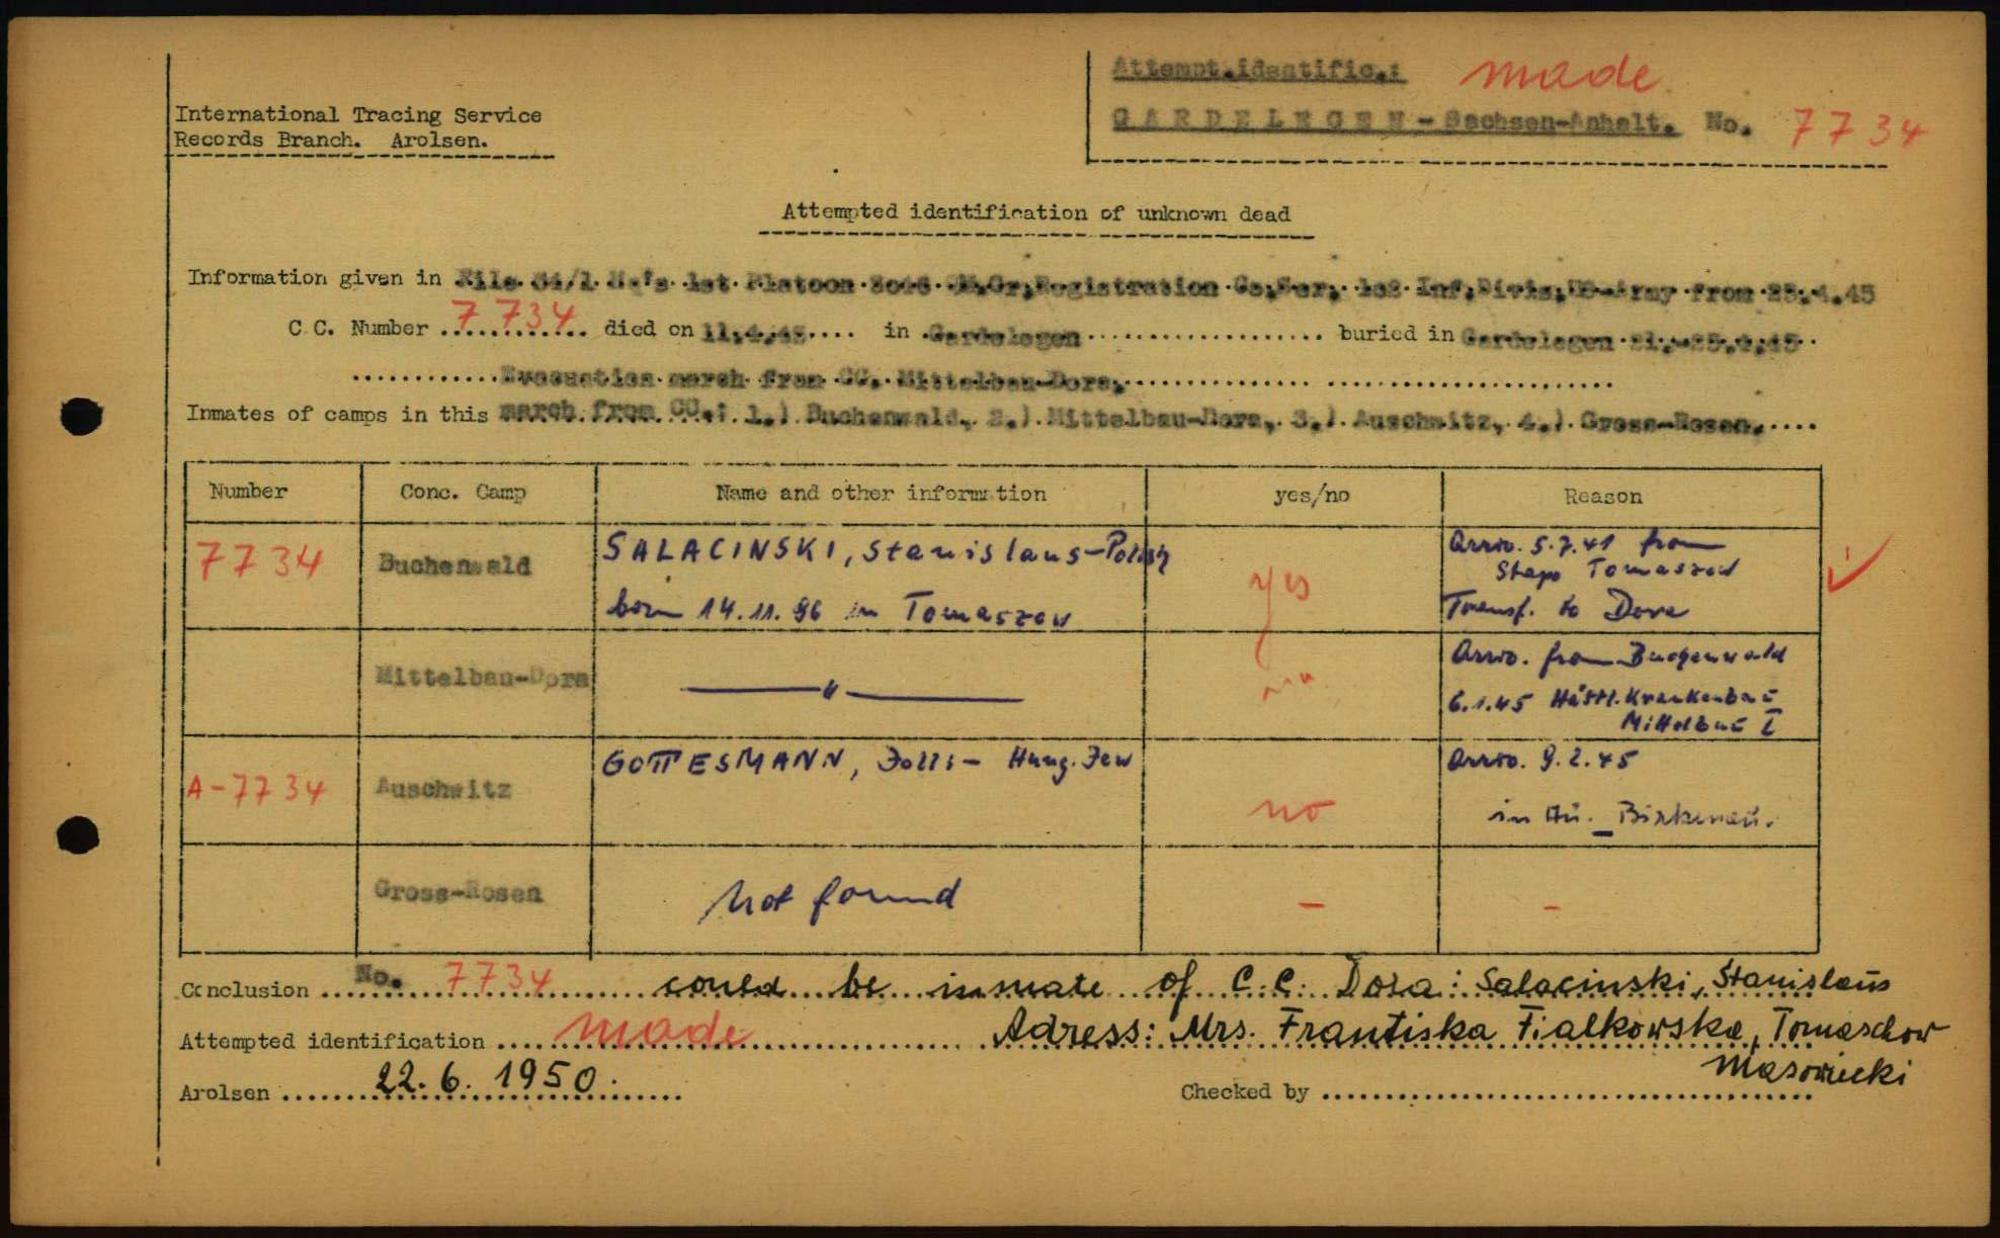 Attempt.identific.: made
International Tracing Service
GARDELEGEN - Sachsen-Anhalt. No. 7734
Records Branch. Arolsen.
Attempted identification of unknown dead
Information given in File 1st Platoon Registration 1st Inf.Divis. US-Army from 25.4.45
C.C. Number 7734 died on 11.4.45 in Gardelegen buried in Gardelegen 21.-25.4.45
Evacuation march from CC. Mittelbau-Dora,
Inmates of camps in this march from CC.: 1.) Buchenwald, 2.) Mittelbau-Dora, 3.) Auschwitz, 4.) Gross-Rosen.
Number Conc. Camp Name and other information yes/no Reason
7734 Buchenwald SALACINSKI, Stanislaus-Polish yes Arriv. 5.7.41 from
Stapo Tomaszow
born 14.11.96 in Tomaszow Transf. to Dora
Mittelbau-Dora —"— Arriv. from Buchenwald
6.1.45 Häftl.Krankenbau
Mittelbau I
A-7734 Auschwitz GOTTESMANN, - Hung. Jew no Arriv. 9.2.45
in Au. - Birkenau.
Gross-Rosen Not found - -
Conclusion No. 7734 could be inmate of C.C. Dora: Salacinski, Stanislaus
Attempted identification made Adress: Mrs. Frantiska Fialkowska, Tomaschow
Masowiecki
Arolsen 22. 6. 1950. Checked by